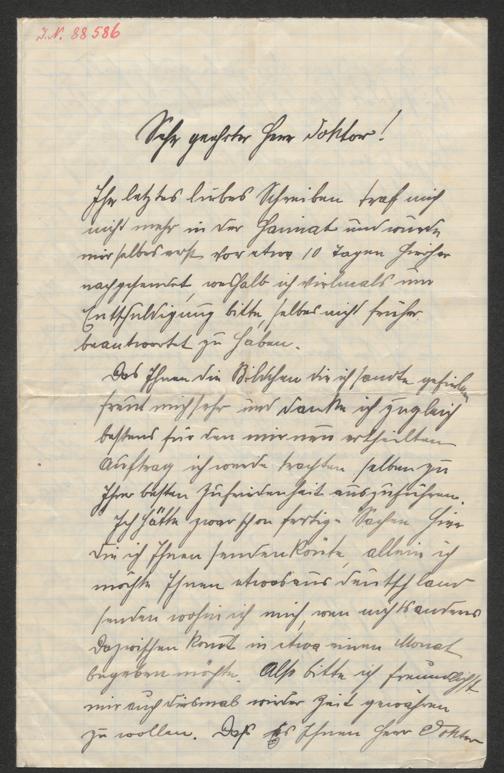 J.N. 88586
Sehr geehrter Herr Doktor!
Ihr letztes liebes Schreiben traf mich
nicht mehr in der Heimat und wurde
mir selbes erst vor etwa 10 Tagen hierher
nachgesendet, weshalb ich vielmals um
Entschuldigung bitte, selbes nicht früher
beantwortet zu haben.
Das Ihnen die Bildchen die ich sandte gefielen
freut mich sehr und danke ich zugleich
bestens für den mir neu ertheilten
Auftrag ich werde trachten selben zu
Ihrer besten Zufriedenheit auszuführen.
Ich hätte zwar schon fertige Sachen hier
die ich Ihnen senden könte, allein ich
möchte Ihnen etwas aus Deutschland
senden wohin ich mich, wen nichts anderes
dazwischen komt in etwa einen Monat
begeben möchte. Also bitte ich freundlichst
mir auch diesmal wieder Zeit gewähren
zu wollen. Daß es Ihnen Herr Doktor